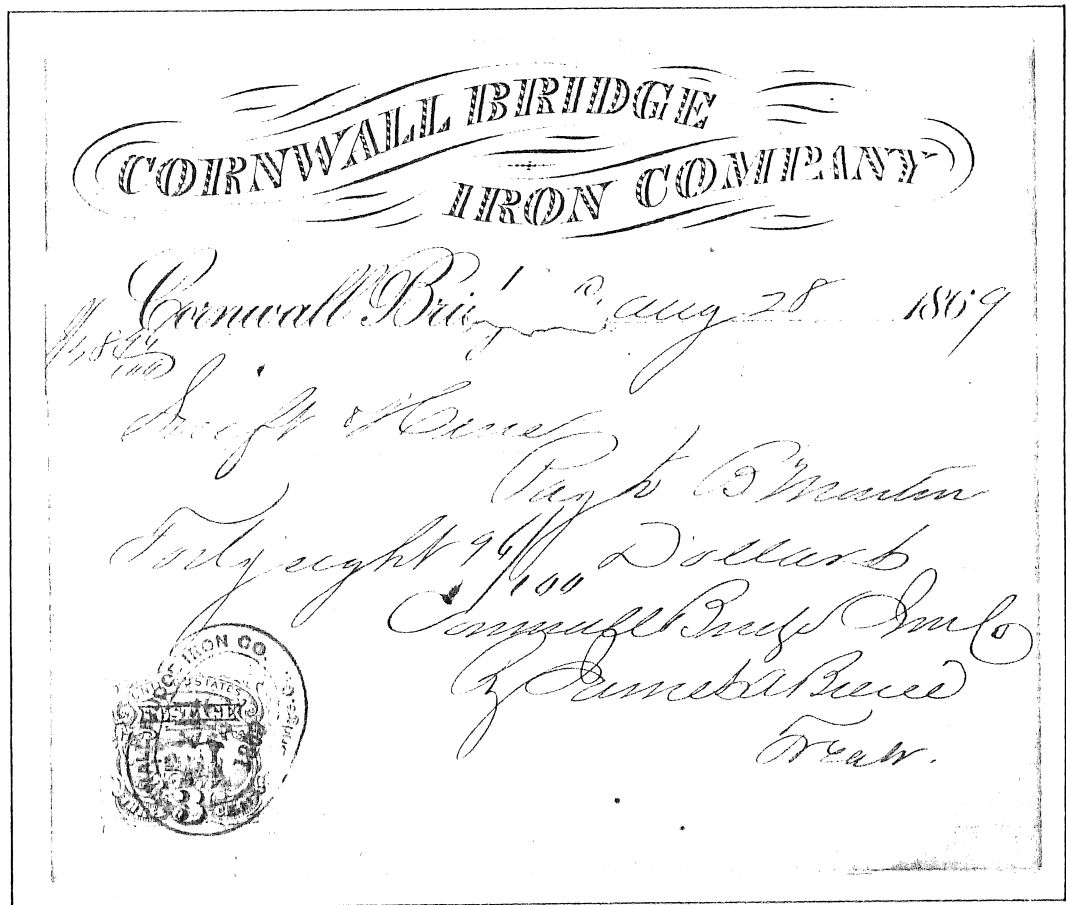 CORNWALL BRIDGE
IRON COMPANY
Cornwall Bri Aug 28 1869
Swift &
Pay to B Martin
Forty eight 94/100 Dollars
Cornwall Bridge Iron Co
By James A Bierce
Treasr.
IRON CO.
UNITED STATES
POSTAGE
3